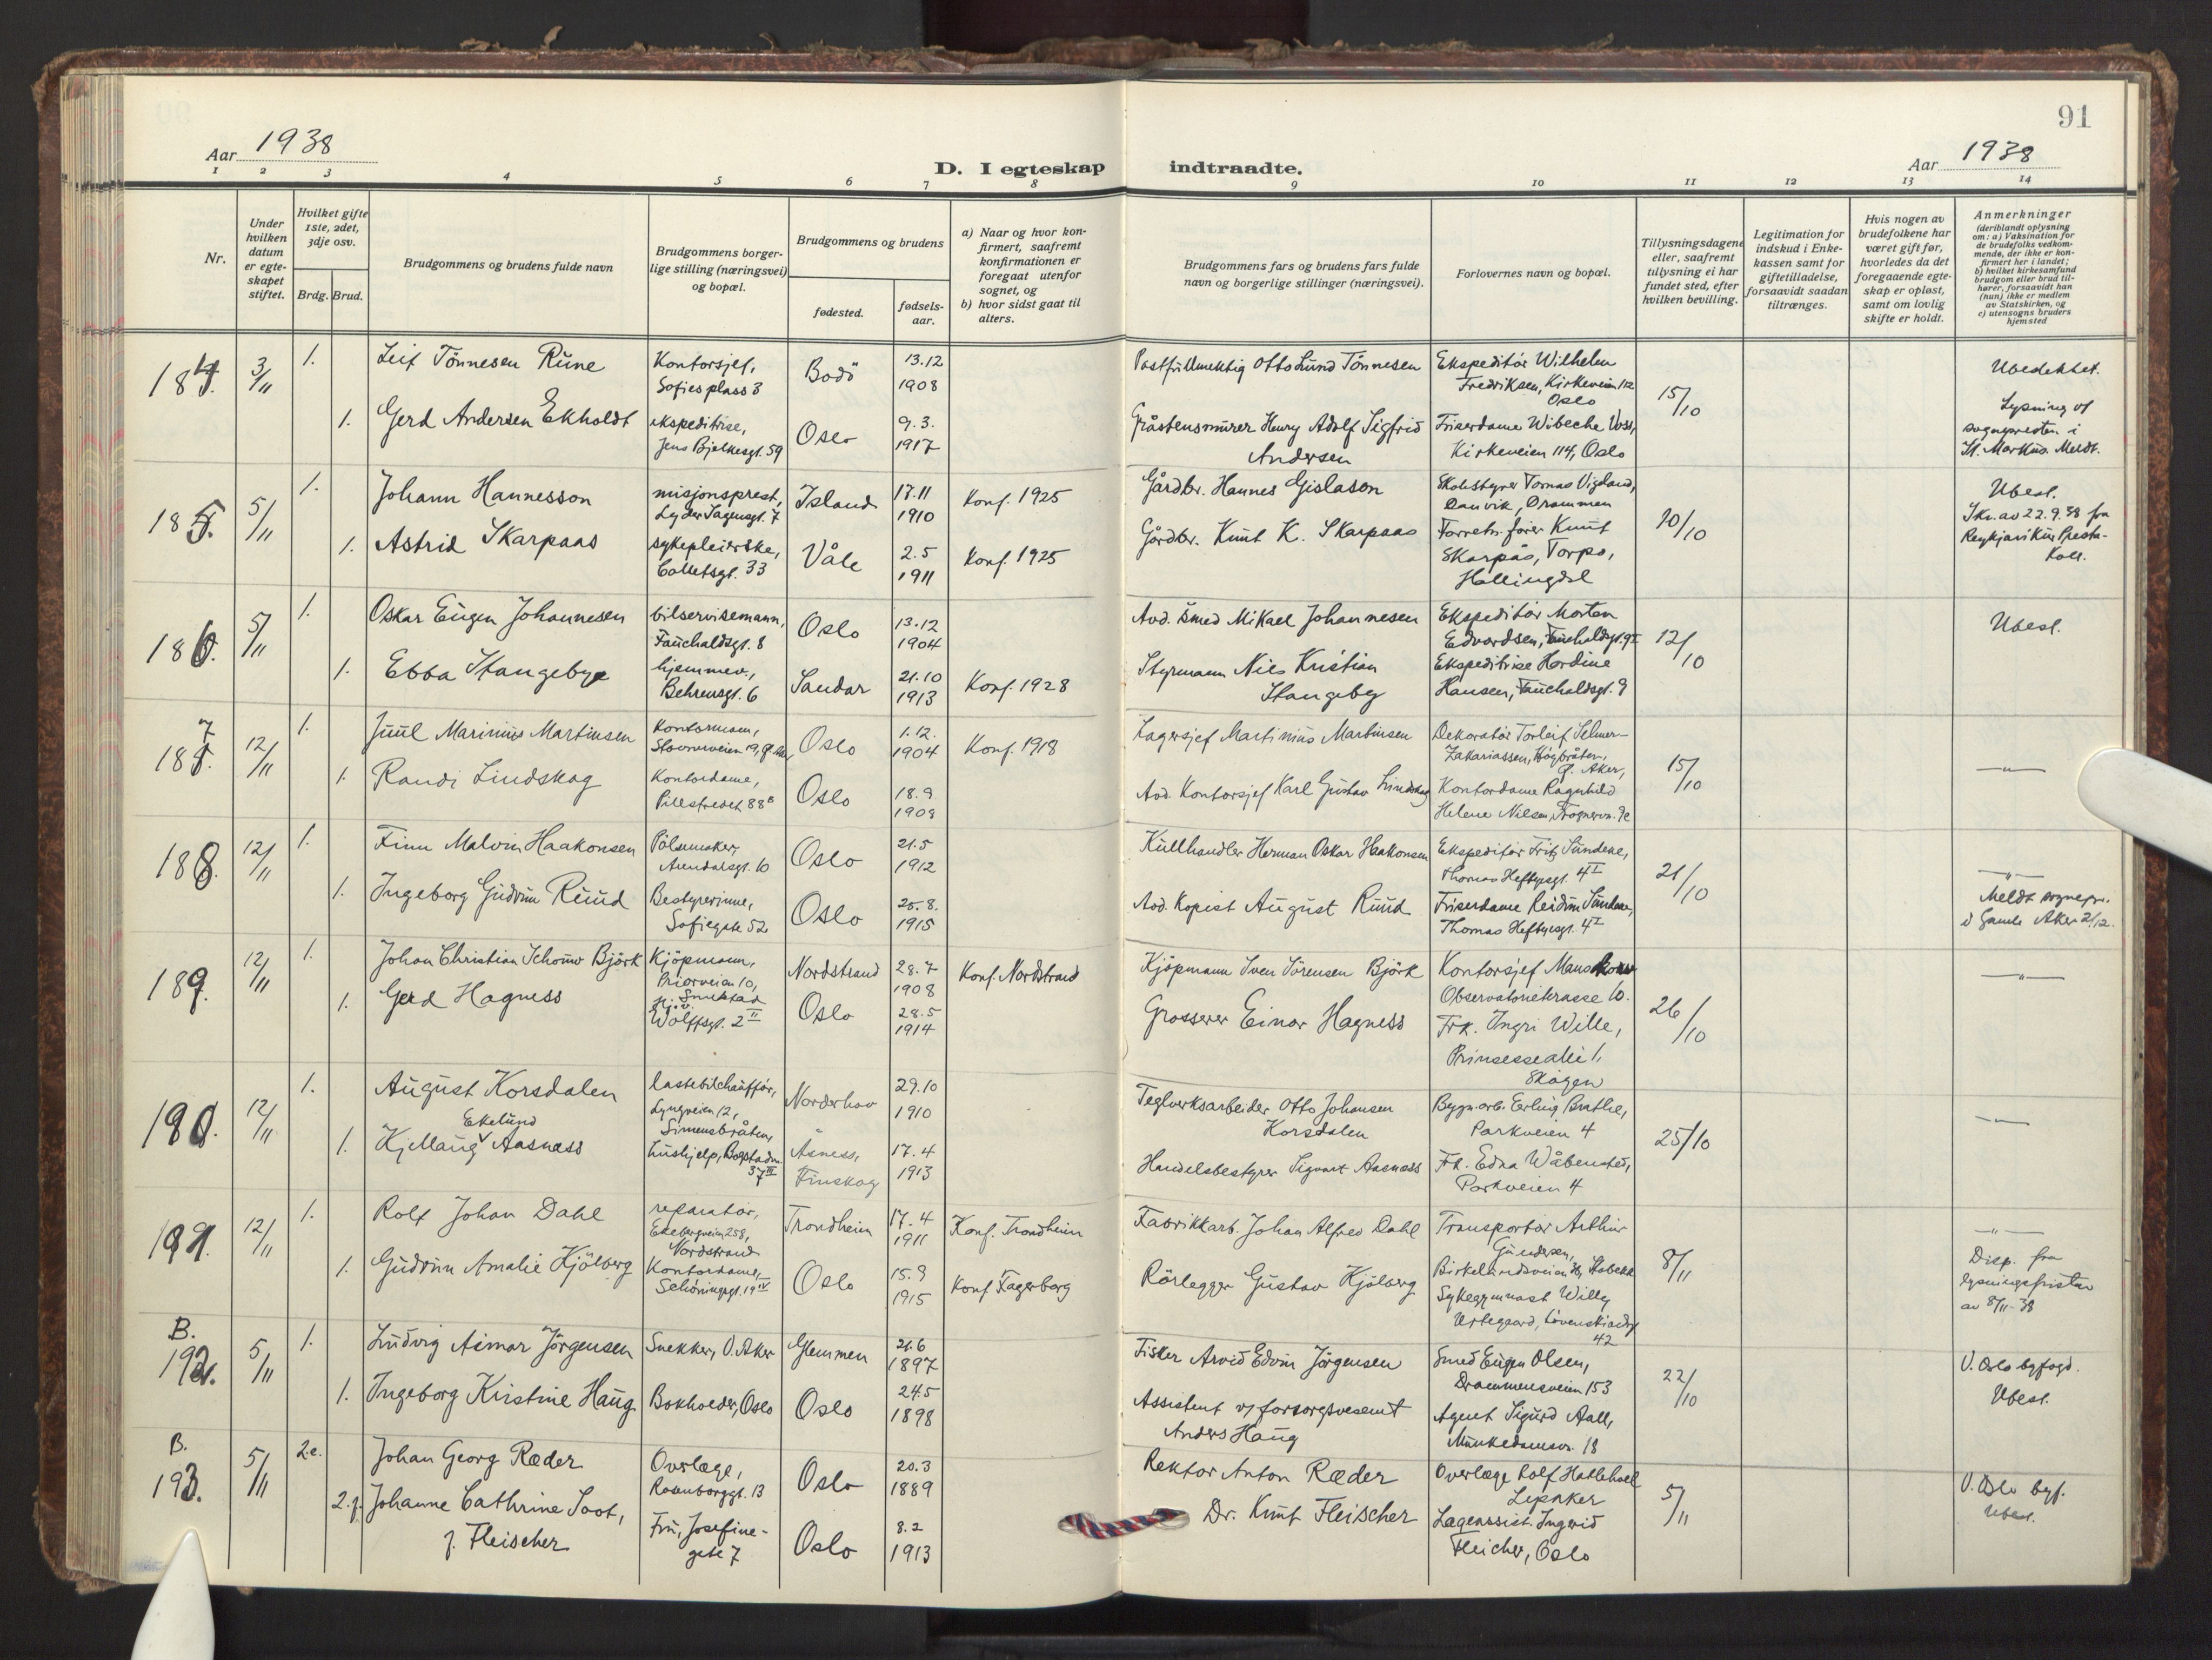 91
Aar 1938
D. I egteskap indtraadte.
Aar 1938
1 2 3 4 5 6 7 8 9 10 11 12 13 14
Nr.
Under hvilken datum er egte-skapet stiftet.
Hvilket gifte 1ste, 2det, 3dje osv.
Brdg. Brud.
Brudgommens og brudens fulde navn
Brudgommens borger-lige stilling (næringsvei) og bopæl.
Brudgommens og brudens
fødested.
fødsels-aar.
a) Naar og hvor kon-firmert, saafremt konfirmationen er foregaat utenfor sognet, og
b) hvor sidst gaat til alters.
Brudgommens fars og brudens fars fulde navn og borgerlige stillinger (næringsvei).
Forlovernes navn og bopæl.
Tillysningsdagene eller, saafremt tillysning ei har fundet sted, efter hvilken bevilling.
Legitimation for indskud i Enke-kassen samt for giftetilladelse, forsaavidt saadan tiltrænges.
Hvis nogen av brudefolkene har været gift før, hvorledes da det foregaaende egte-skap er opløst, samt om lovlig skifte er holdt.
Anmerkninger (deriblandt oplysning om: a) Vaksination for de brudefolks vedkom-mende, der ikke er kon-firmert her i landet; b) hvilket kirkesamfund brudgom eller brud til-hører, forsaavidt han (hun) ikke er medlem av Statskirken, og c) utensogns bruders hjemsted
184. 3/11 1. Leif Tönnesen Rune Kontorsjef, Sofies plass 3 Bodö 13.12 1908 Postfullmektig Otto Lund Tönnesen Ekspeditör Wilhelm Fredriksen, Kirkeveien 112 Oslo 15/10 Ubeslektet.
1. Gerd Andersen Ekholdt ekspeditrise, Jens Bjelkesgt. 59 Oslo 9.3. 1917 Gråstensmurer Henry Adolf Sigfrid Andersen Friserdame Wibeche Voss, Kirkeveien 114, Oslo Lysning v/ sognepresten i St. Markus. Meldt.
185. 5/11 1. Johann Hannesson misjonsprest, Lyder Sagensgt. 7 Island 17.11 1910 Konf. 1925 Gårdbr. Hannes Gislason Skolestyrer Tomas Vigdand, Danvik, Drammen 10/10 Ubesl.
1. Astrid Skarpaas sykepleierske, Colletsgt. 33 Våle 2.5 1911 Konf. 1925 Gårdbr. Knut K. Skarpaas Forretn.förer Knut Skarpås, Torpo, Hallingdal Skr. av 22.9.38 fra Reykjavikur Presta-Kall.
186. 5/11 1. Oskar Eugen Johannesen bilservisemann, Fauchaldsgt. 8 Oslo 13.12 1904 Avd. smed Mikael Johannesen Ekspeditör Morten Edvardsen, Fauchaldsgt. 9 I 12/10 Ubesl.
1. Ebba Stangebye hjemmev., Behrensgt. 6 Sandar 21.10 1913 Konf. 1928 Styrmann Nils Kristian Stangeby Ekspeditrise Hardine Hansen, Fauchaldsgt. 9
187. 12/11 1. Juul Marinius Martinsen Kontormann, Stovnerveien 19, Oslo 1.12. 1904 Konf. 1918 Lagersjef Martinius Martinsen Dekoratör Torleif Selmer-Zakariassen, Högbråten, Ø. Aker, 15/10 -"-
1. Randi Lindskog Kontordame, Pilestredet 88 B Oslo 18.9 1909 Avd. Kontorsjef Karl Gustav Lindskog Kontordame Ragnhild Helene Nilsen, Frognervn. 9c
188. 12/11 1. Finn Malvin Haakonsen Pölsemaker, Arendalsgt. 10 Oslo 21.5 1912 Kullhandler Herman Oskar Haakonsen Ekspeditör Fritz Sundene, Thomas Heftyesgt. 4 I 21/10 -"-
1. Ingeborg Gudrun Ruud Bestyrerinne, Sofiegate 52 Oslo 25.8. 1915 Avd. Kopist August Ruud Friserdame Reidun Sundene, Thomas Heftyesgt. 4 I Meldt sognepr. i Gamle Aker 2/12.
189. 12/11 1. Johan Christian Schouw Björk Kjöpmann, Priorveien 10, Smestad Nordstrand 28.7 1908 Konf. Nordstrand Kjöpmann Sven Sörensen Björk Kontorsjef Observatorieterasse 10. 26/10 -"-
1. Gerd Hagness hj.v. Wolffsgt. 2 II Oslo 28.5 1914 Grosserer Einar Hagness Frk. Ingri Wille, Prinsessealle 1, Skøyen
190. 12/11 1. August Korsdalen lastebilchauffør, Lyngveien 12, Simensbråten, Norderhov 29.10 1910 Teglverksarbeider Otto Johansen Korsdalen Bygn.arb. Erling Brathe, Parkveien 4 25/10 -"-
1. Kjellaug Ekelund Aasnæss hushjelp, Bogstadv. 37 III Åsness, Finskog 17.4 1913 Handelsbestyrer Sigvart Aasnæss Frk. Edna Wåbensted, Parkveien 4
191. 12/11 1. Rolf Johan Dahl reparatør, Ekebergveien 258, Nordstrand Trondheim 17.4 1911 Konf. Trondheim Fabrikkarb. Johan Alfred Dahl Transportör Arthur Gundersen, Birkelundsveien 8/11 -"-
1. Gudrun Amalie Kjölberg Kontordame, Schöningsgt. 19 IV Oslo 15.9 1915 Konf Fagerborg Rörlegger Gustav Kjölberg Sykegymnast Willy Urtegaard, Lövenskioldsgt 42 Disp. fra lysningsfristen av 8/11-38
B. 192. 5/11 1. Ludvig Aimar Jörgensen Snekker, V. Aker Glemmen 21.6 1897 Fisker Arvid Edvin Jörgensen Smed Eugen Olsen, Drammensveien 153 22/10 V. Oslo byfogd. Ubesl.
1. Ingeborg Kristine Haug Bokholder, Oslo Oslo 24.5 1898 Assistent v/ forsorgsvesenet Anders Haug Agent Sigurd Aall, Munkedamsv. 18
B. 193. 5/11 2.e. Johan Georg Ræder Overlæge, Rosenborggt. 13 Oslo 20.3 1889 Rektor Anton Ræder Overlæge Rolf Hatlehoel Lysaker 5/11 V. Oslo byf. Ubesl.
2.f. Johanne Cathrine Soot, f. Fleischer Fru, Josefine-gate 7 Oslo 8.2 1913 Dr. Knut Fleischer Lægeassist. Ingerid Fleicher, Oslo